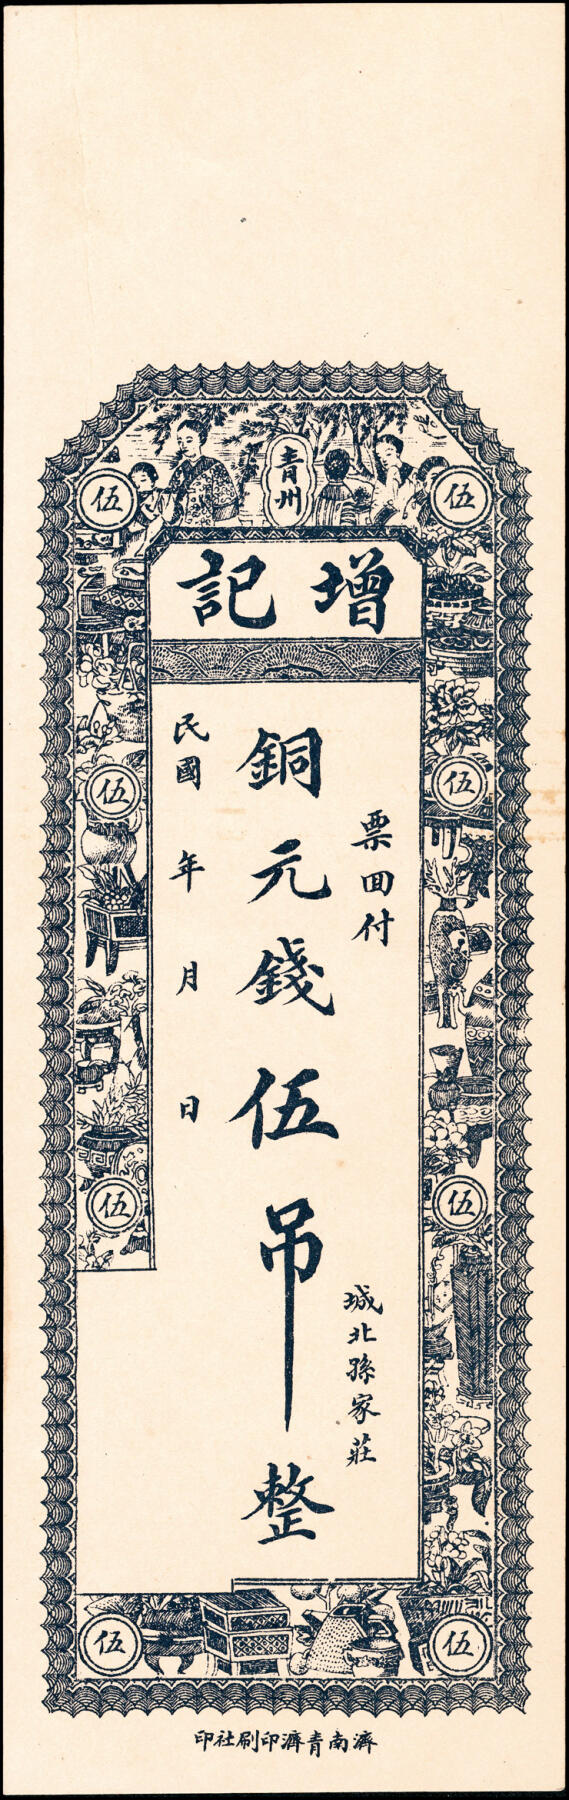 青州
伍 伍
增記
票回付
城北孫家莊
銅元錢伍吊整
民國 年 月 日
伍 伍
伍 伍
伍 伍
濟南青濟印刷社印